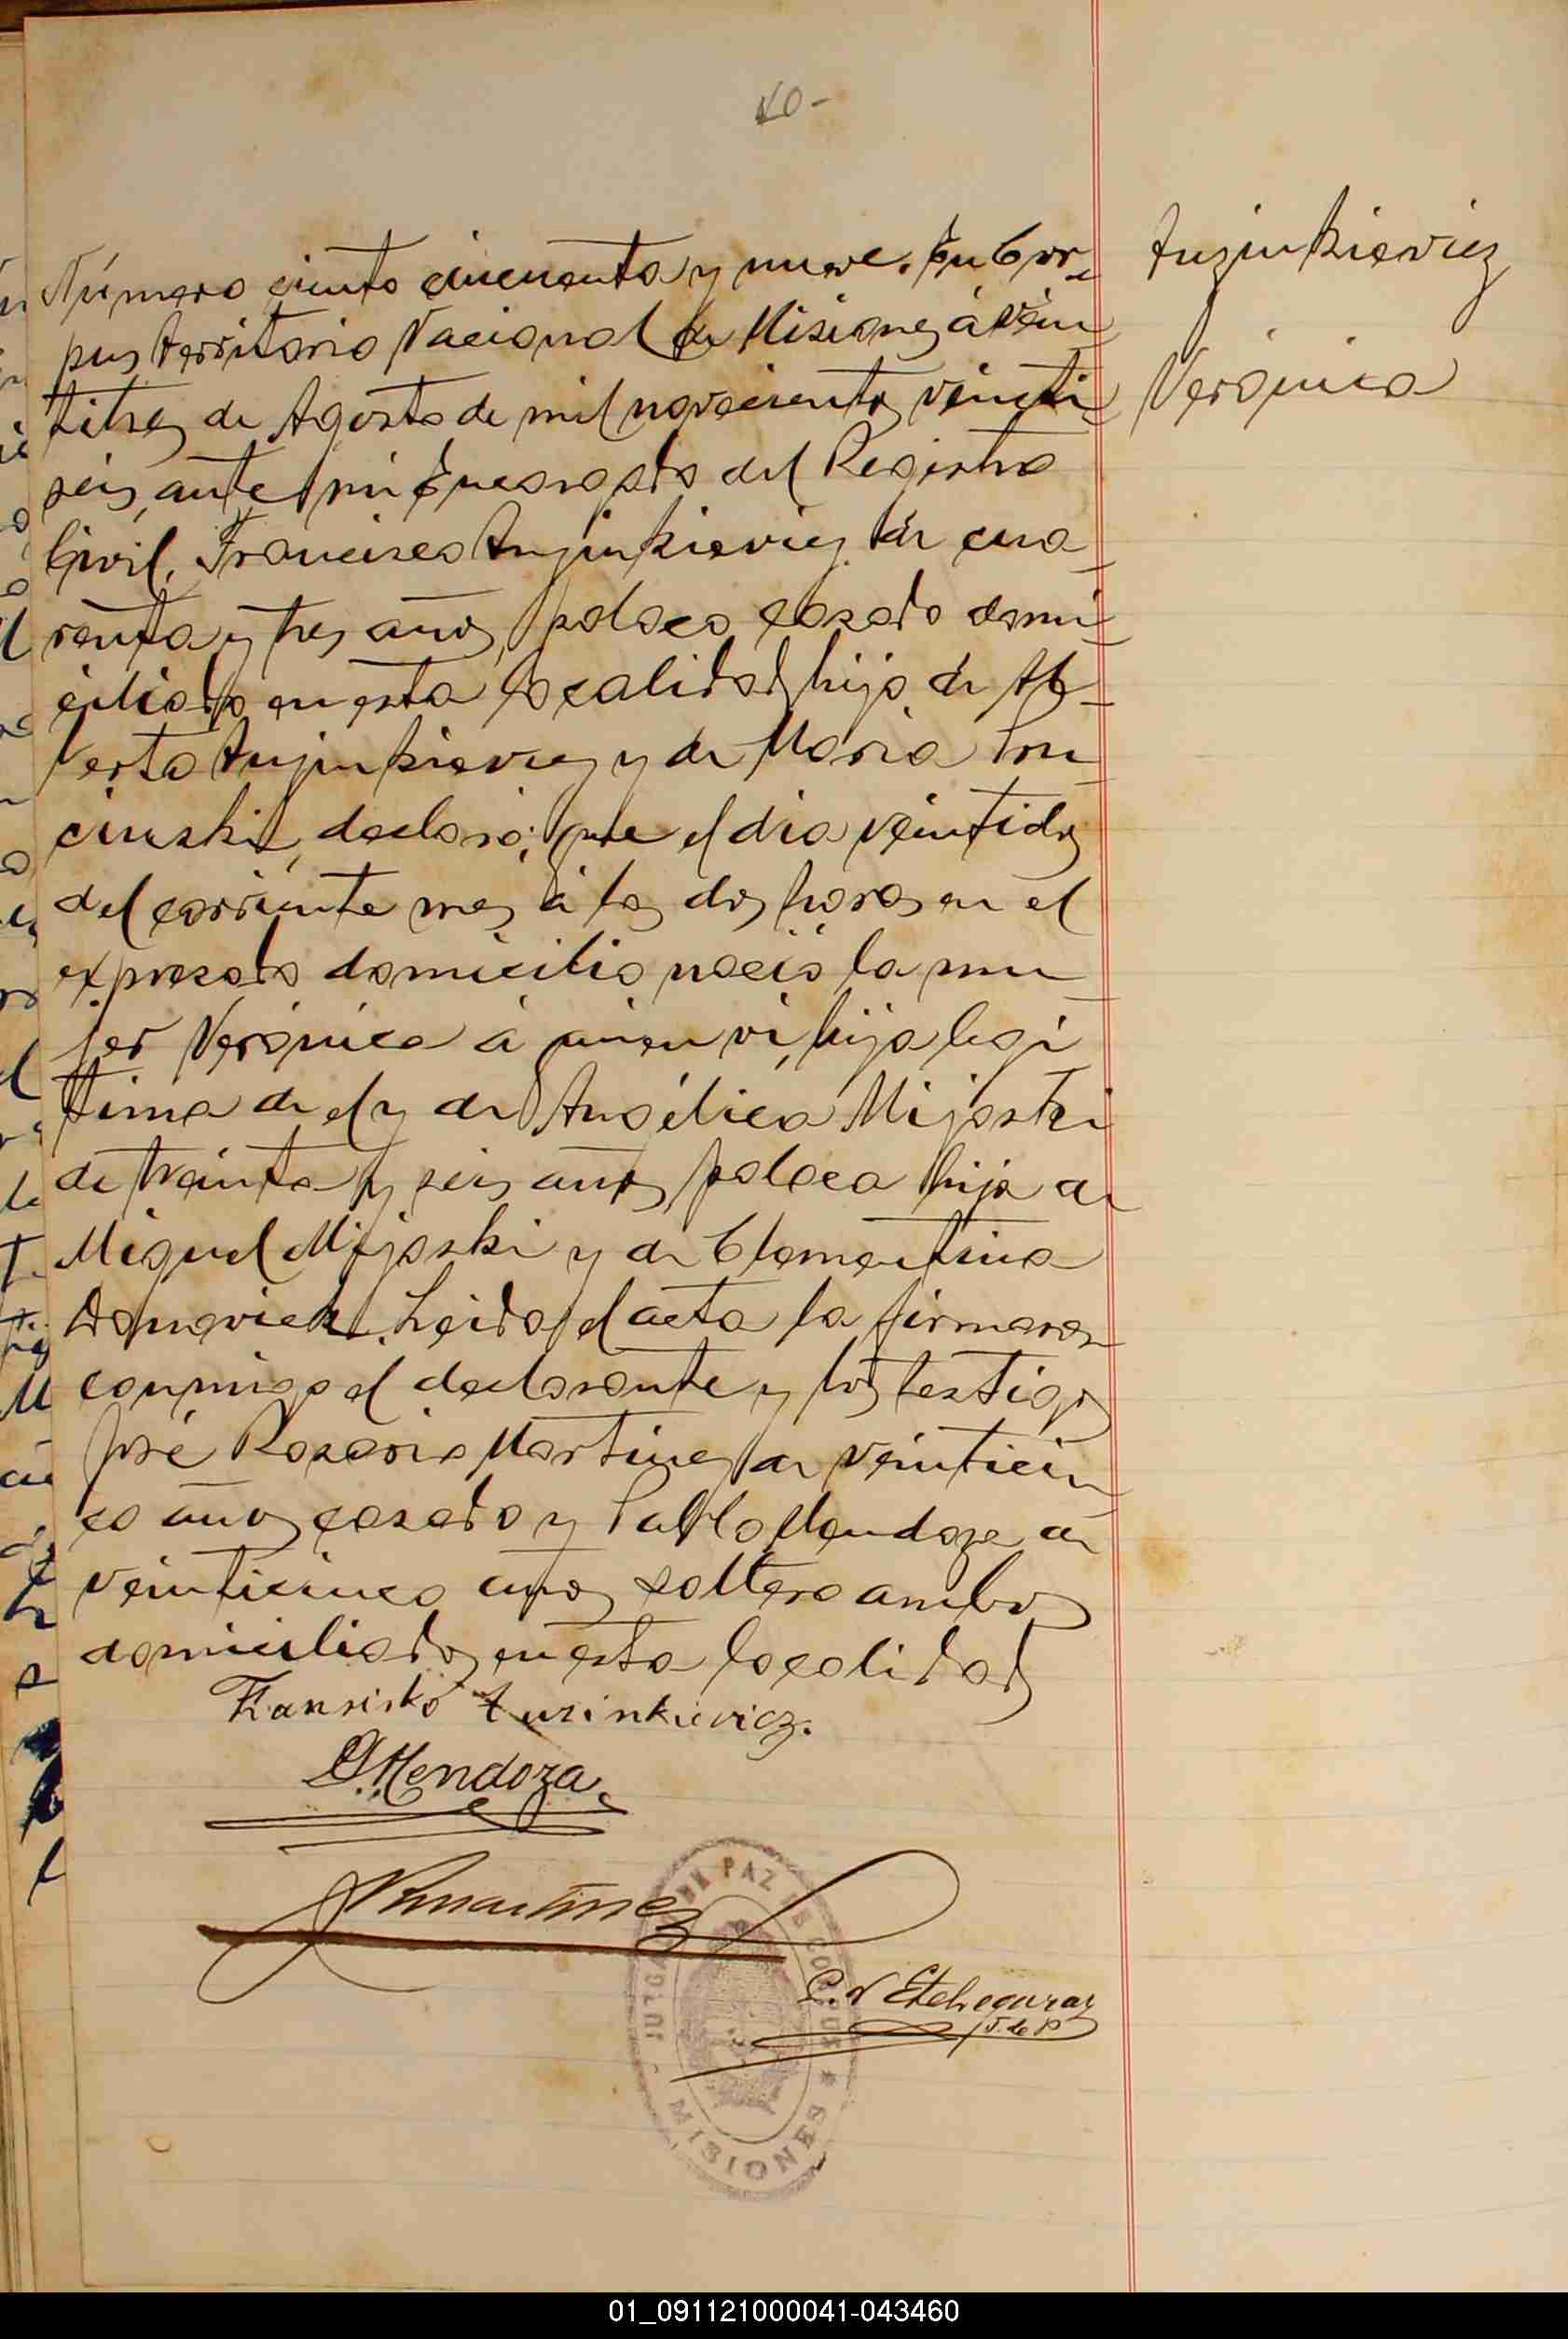 10-
Número ciento cincuenta y nueve. En Cor-
pus Territorio Nacional de Misiones á vein
titres de Agosto de mil novecientos veinti
seis, ante mi Encargado del Registro
Civil, Francisco Auzinkieviez de cua-
renta y tres años, polaco casado domi-
ciliado en esta localidad hijo de Al-
berto Auzinkieviez y de Maria
declaró; que el dia veintidos
del corriente mes á las dos horas en el
expresado domicilio nació la mu
jer Verónica á quien vi, hija legi
tima de el y de Angélica Mijaski
de treinta y seis años, polaca hija de
Miguel Mijaski y de Clementina
Leida el acta la firmaron
conmigo el declarante y los testigos
José Rosario Martinez de veinticin
co años casado y Pablo Mendoza de
veinticinco años soltero ambos
domiciliados en esta localidad
Auzinkieviez
Verónica
Fransisko Auzinkievicz.
P. Mendoza
JRMartinez
C. V Etchegaray
J. de P
JUZGADO DE PAZ DE CORPUS * MISIONES
01_091121000041-043460